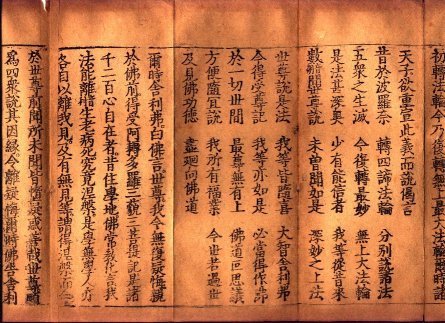 初轉法輪今乃復轉無
天子欲重宣此義而說偈言
昔於波羅奈　轉四諦法輪　分別說諸法
五衆之生滅　今復轉最妙　無上大法輪
是法甚深奧　少有能信者　我等從昔來
數聞世尊說　未曾聞如是　深妙之上法
世尊說是法　我等皆隨喜　大智舍利弗
今得受尊記　我等亦如是　必當得作佛
於一切世間　最尊無有上　佛道叵思議
方便隨宜說　我所有福業　今世若過世
及見佛功德　盡迴向佛道
爾時舍利弗白佛言世尊我今無復疑悔親
於佛前得受阿耨多羅三藐三菩提記是諸
千二百心自在者昔住學地佛常教化言我
法能離生老病死究竟涅槃是學無學人亦
各自以離我見及有無見等謂得涅槃而今
於世尊前聞所未聞皆墮疑惑善哉世尊願
為四衆說其因緣令離疑悔爾時佛告舍利